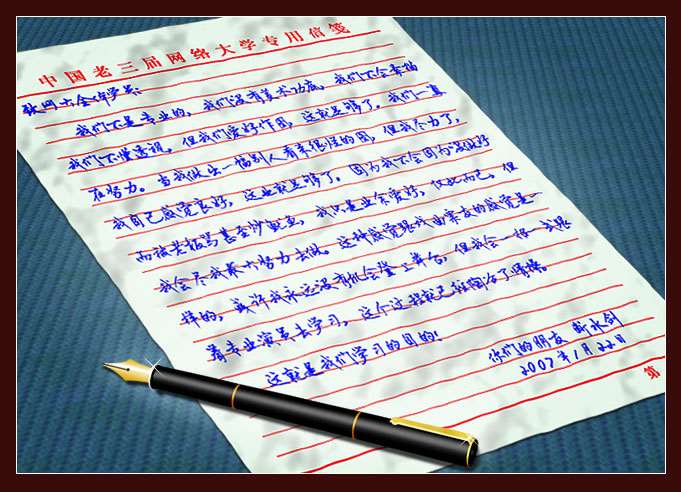 中国老三届网络大学专用信笺
致网大全体学员：
我们不是专业的，我们没有美术功底，我们不会素描
我们不懂透视，但我们爱好作图，这就足够了。我们一直
在努力。当我做出一幅别人看来很的图，但我尽力了，
我自己感觉良好，这也就足够了。因为我不会因为没做好
而被老板骂甚至炒鱿鱼，我只是业余爱好，仅此而已。但
我会尽我最大努力去做。这种感觉跟我票友的感觉是一
样的，或许我永远没有机会登上舞台，但我会一招一式跟
着专业演员去学习，这个过程就已经陶冶了情操。
这就是我们学习的目的！
你们的朋友 水剑
2007年1月22日
第